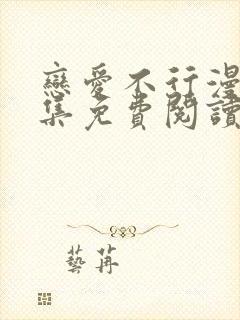 戀愛不行漫
集免費閱讀
藝苒